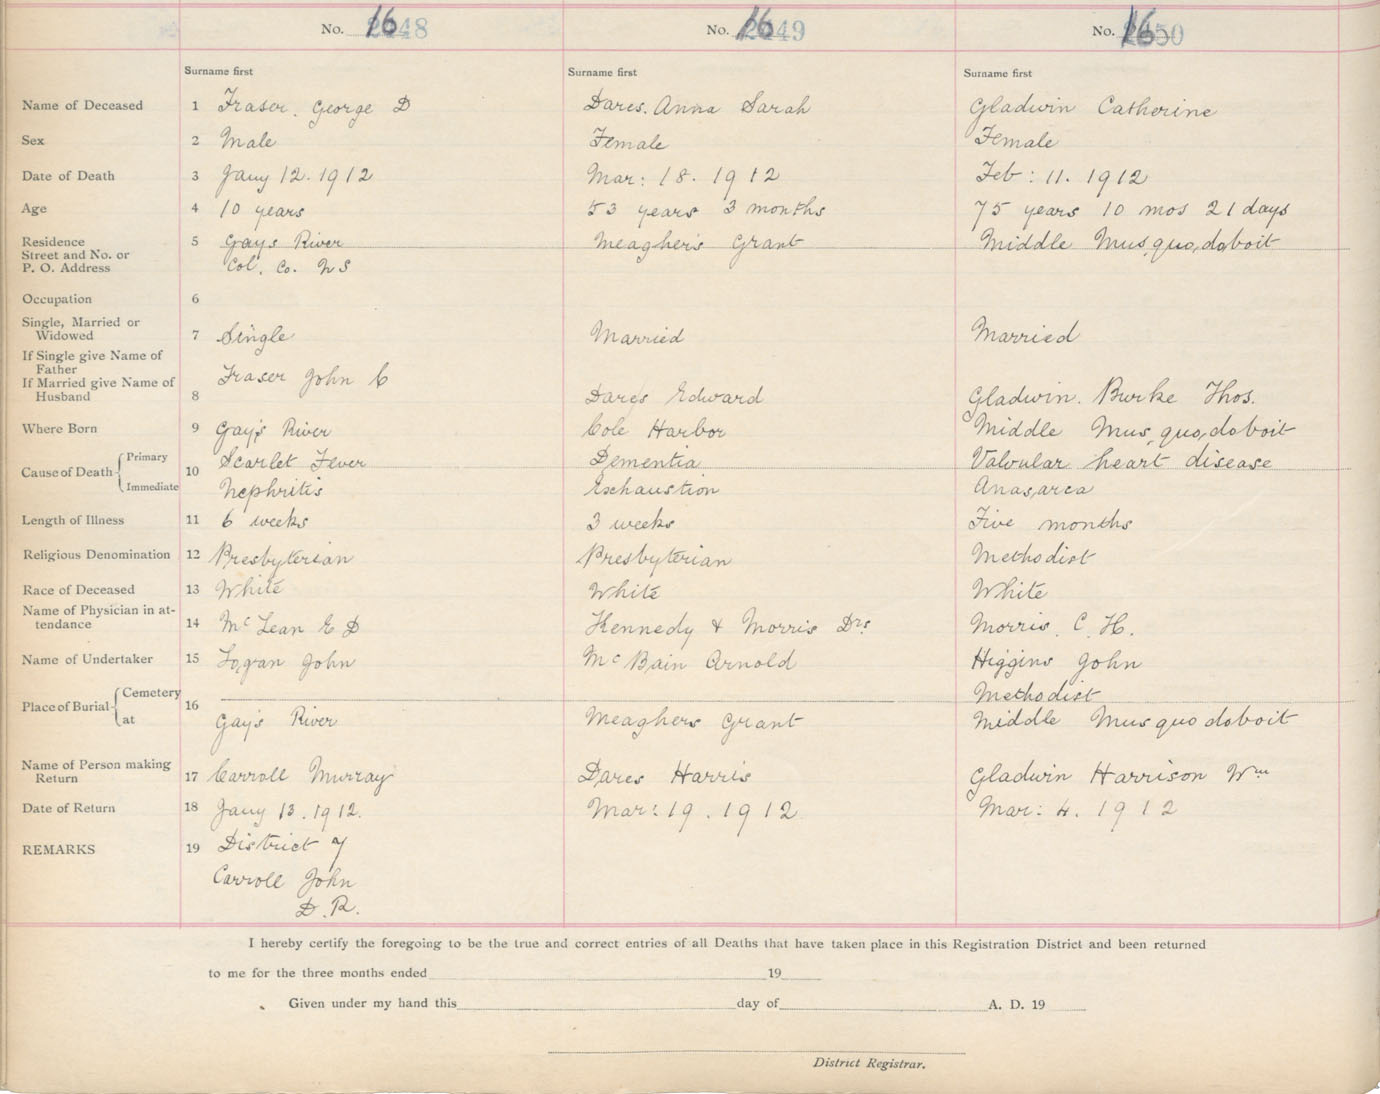 No. 16 2448 No. 16 2449 No. 16 2450
Surname first Surname first Surname first
Name of Deceased 1 Fraser. George D Dares. Anna Sarah Gladwin Catherine
Sex 2 Male Female Female
Date of Death 3 Jany 12. 1912 Mar: 18. 1912 Feb: 11. 1912
Age 4 10 years 53 years 3 months 75 years 10 mos 21 days
Residence 5 Gays River Meagher's Grant Middle Musquodoboit
Street and No. or
P. O. Address Col. Co. NS
Occupation 6
Single, Married or
Widowed 7 Single Married Married
If Single give Name of
Father Fraser John C
If Married give Name of
Husband 8 Dares Edward Gladwin. Burke Thos.
Where Born 9 Gay's River Cole Harbor Middle Musquodoboit
Cause of Death Primary 10 Scarlet Fever Dementia Valvular heart disease
Immediate Nephritis Exhaustion Anasarca
Length of Illness 11 6 weeks 3 weeks Five months
Religious Denomination 12 Presbyterian Presbyterian Methodist
Race of Deceased 13 White White White
Name of Physician in at-
tendance 14 McLean E D Kennedy & Morris Drs Morris. C. H.
Name of Undertaker 15 Logan John McBain Arnold Higgins John
Place of Burial Cemetery 16 Methodist
at Gay's River Meaghers Grant Middle Musquodoboit
Name of Person making
Return 17 Carroll Murray Dares Harris Gladwin Harrison Wm
Date of Return 18 Jany 13. 1912. Mar: 19. 1912 Mar: 4. 1912
REMARKS 19 District 7
Carroll John
D. R.
I hereby certify the foregoing to be the true and correct entries of all Deaths that have taken place in this Registration District and been returned
to me for the three months ended 19
Given under my hand this day of A. D. 19
District Registrar.